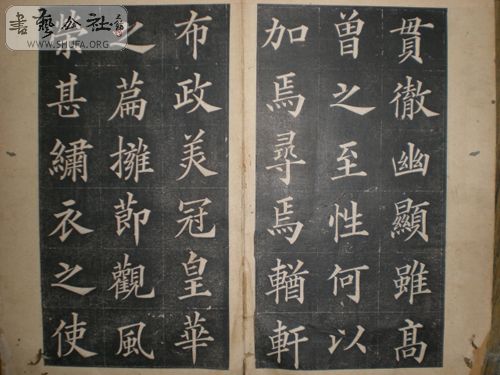 貫徹幽顯雖高
曽之至性何以
加焉尋焉輶軒
布政美冠皇華
之萹擁節觀風
甚繡衣之使
書藝公社
WWW.SHUFA.ORG